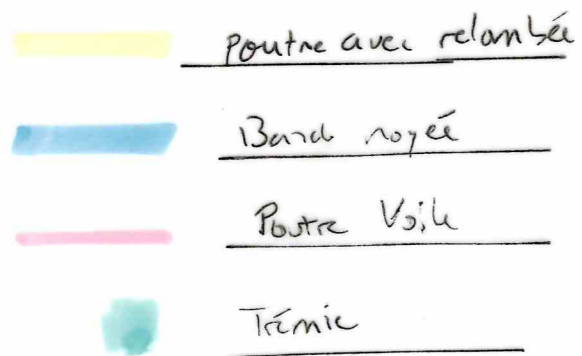 Poutre avec relombée
Band noyée
Poutre Voile
Trémie